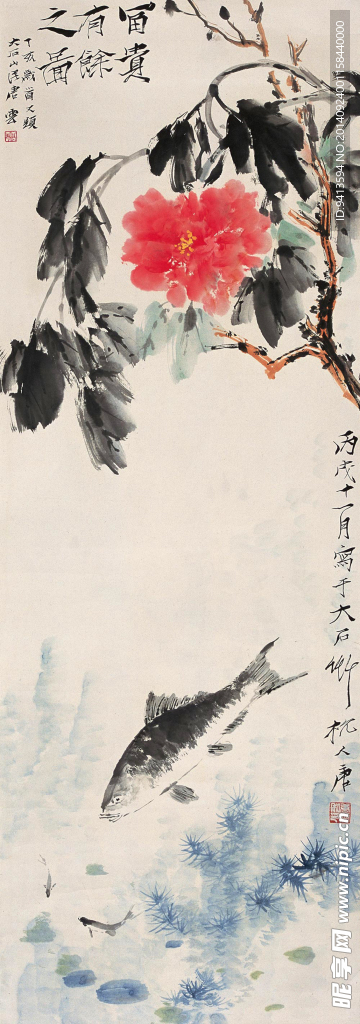 富貴
有餘
之圖
丁亥歲首又題
大石山民唐雲
丙戌十一月寫于大石
杭人唐
ID:9413594 NO:20140924001158440000
昵享网 www.nipic.cn